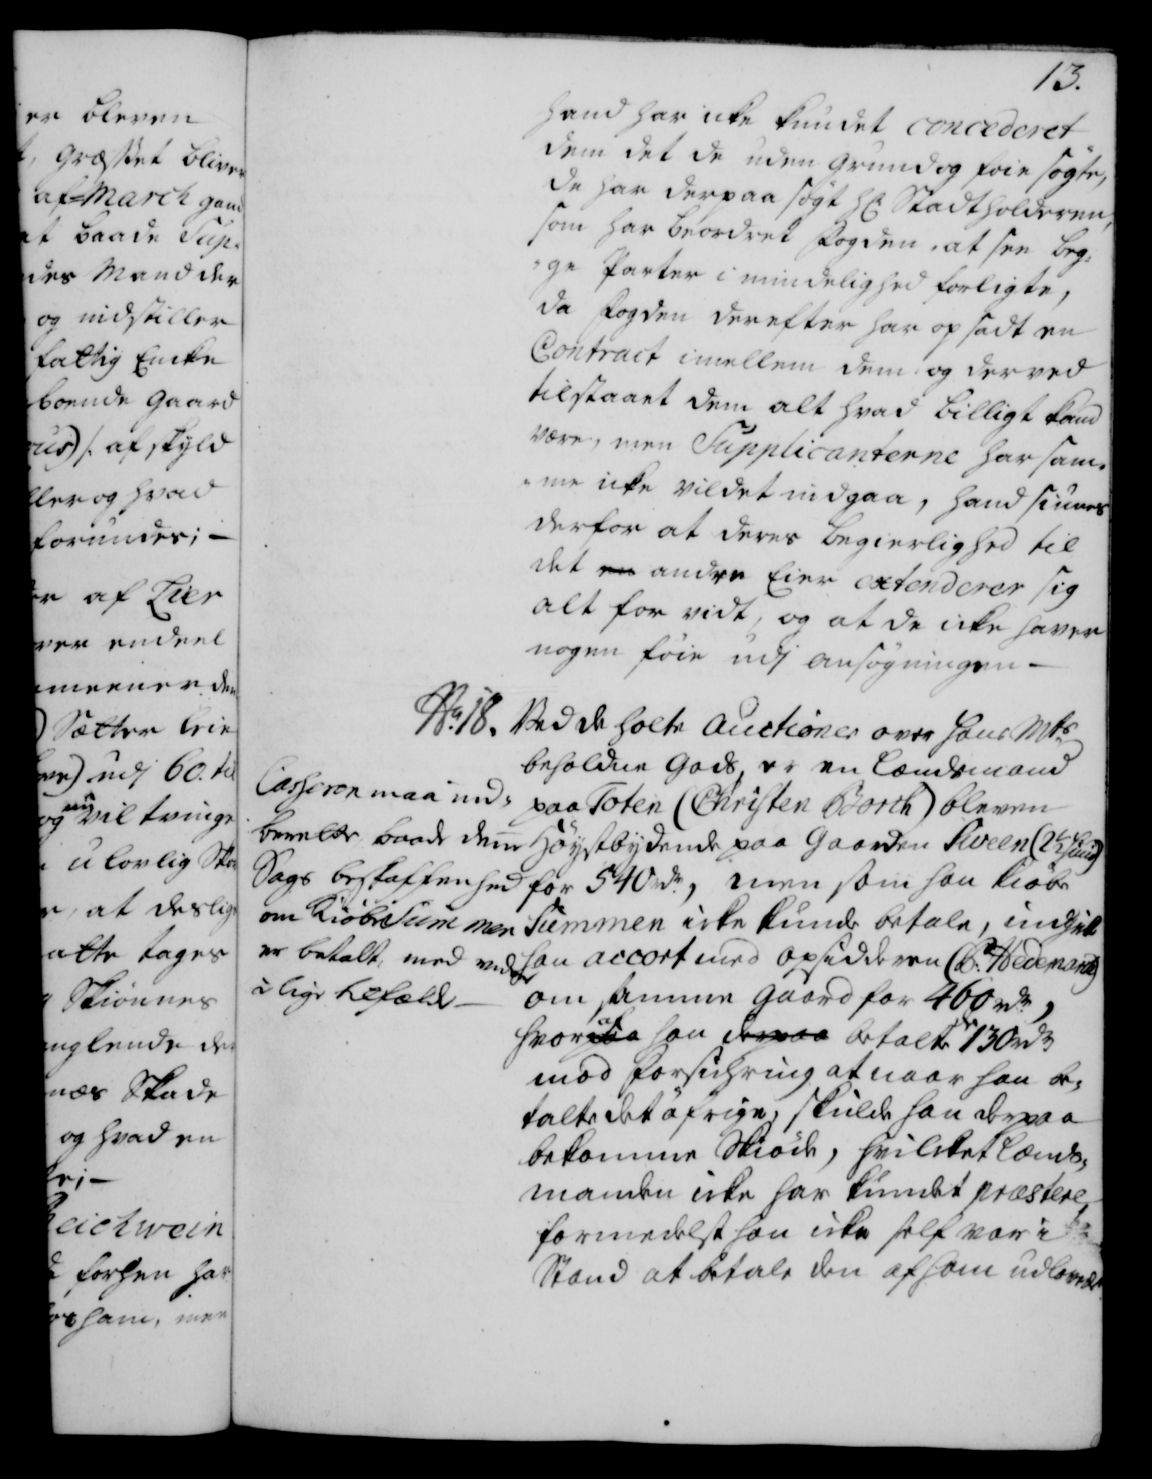 13.
hand har icke kundet concederet
dem det de uden grund og foie søgte,
de har derpaa søgt Hr Stadtholderen,
som har beordret fogden, at see beg-
ge Parter i mindelighed forligte,
da fogden derefter har opsadt en
Contract imellem dem og derved
tilstaaet dem alt hvad billigt kand
være, men Supplicanterne har sam-
me icke vildet indgaa, hand siunes
derfor at deres begierlighed til
det en andre Eier extenderer sig
alt for vidt, og at de icke haver
nogen føie udj ansøgningen -
No. 18. Ved de holte Auctioner over hans Mts
beholdne Gods, er en Lændsmand
paa Toten (Christen Borch) bleven
Høystbydende paa Gaarden Kween (2½ Hud)
for 540 rdr, men som han Kiøbe
Summen icke kunde betale, indgik
han accort med opsidderen (P. Hedemand)
om samme Gaard for 460 rdr,
hvorpaa af han derpaa betalte 130 rdr
mod forsichring at naar han be-
talte det øfrige, skulde han derpaa
bekomme Skiøde, hvilcket Lænds-
manden icke har kundet præstere,
formedelst han icke self var i
Stand at betale den af ham udlovede
Casseren maa ind-
berette baade denne
Sags beskaffenhed
om Kiøbe Summen
er betalt, med vide
i lige tilfælde -
er bleven
græsset bliver
af March gand
at baade Sup-
des Mand der
og indstiller
fattig Encke
boende Gaard
af skyld
ller og hvad
forundes; -
er af Lier
ver endeel
meener den
Sætter Leie
udj 60. til
og ny vil tvinge
ulovlig Ska
at deslige
atte tages
Skiønnes
nglende de
næs Skade
og hvad en
Reichwein
forhen har
ham, men